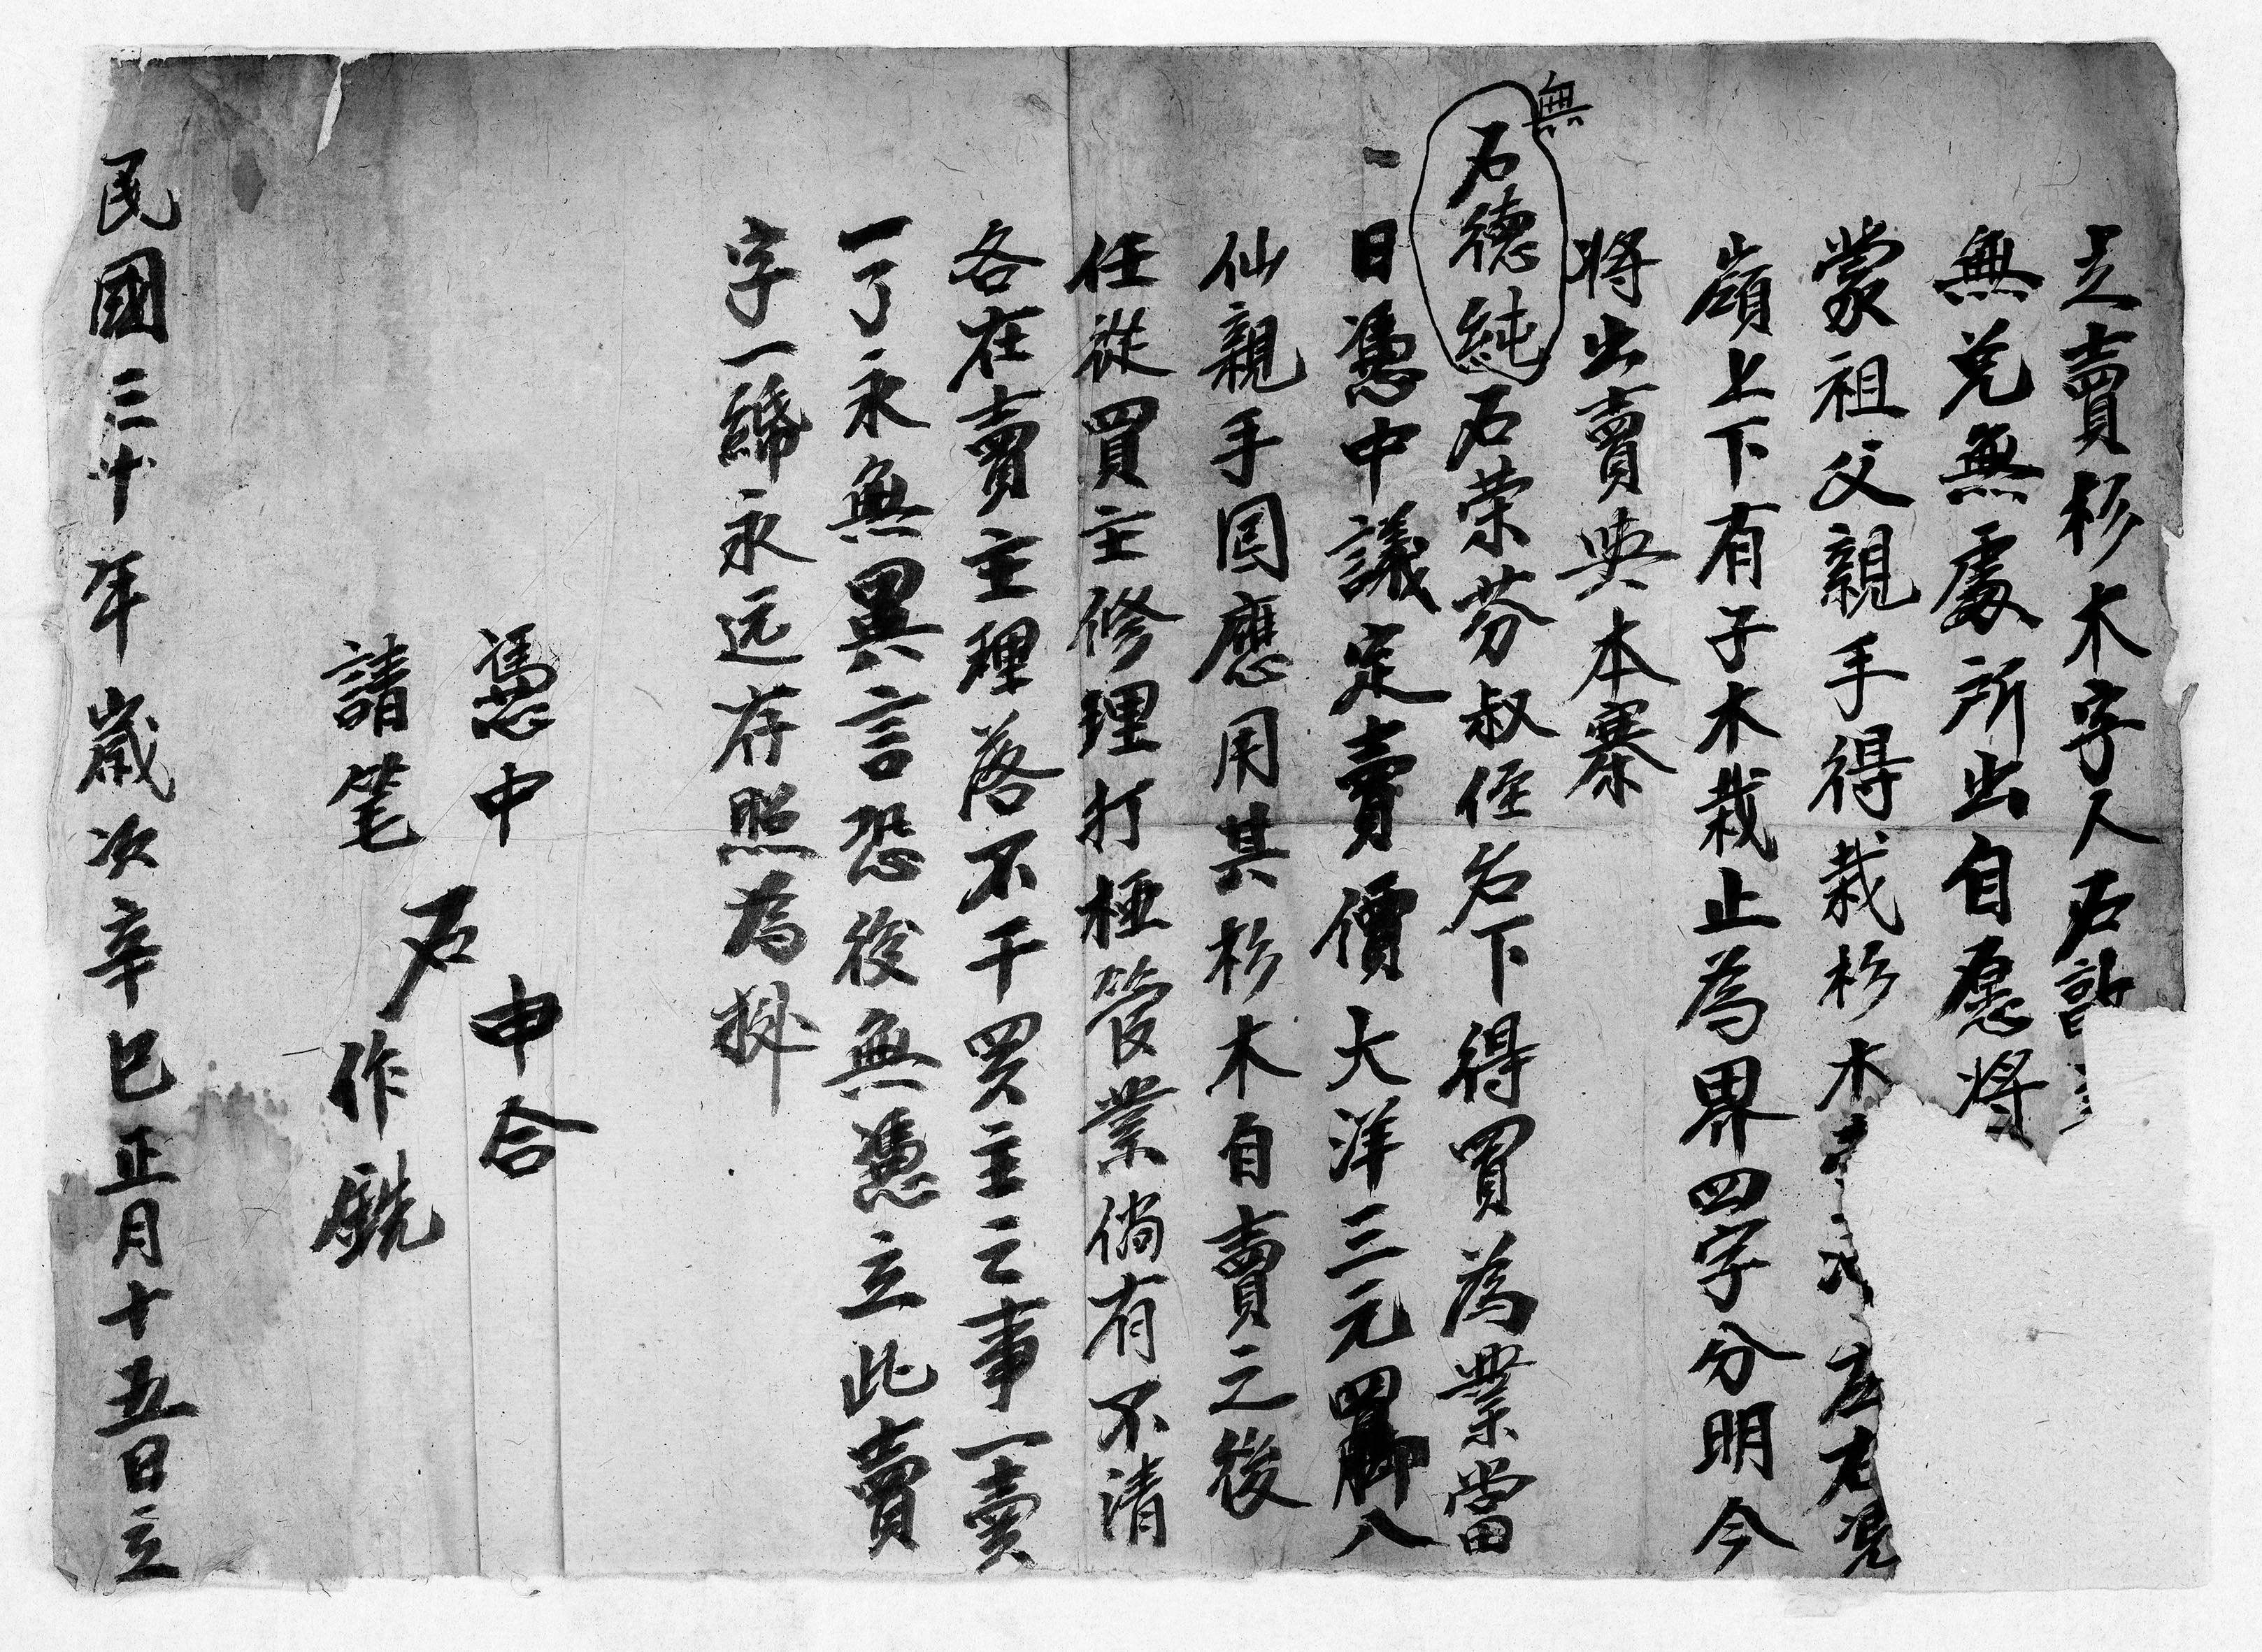 立賣杉木字人石
無兑無處所出自愿將
蒙祖父親手得栽杉木
嶺上下有子木栽止為界四字分明今
將出賣與本寨
無
石德純石荣芬叔侄名下得買為業當
一日憑中議定賣價大洋三元四脚八
仙親手囯應用其杉木自賣之後
任從買主修理打極管業倘有不清
各在賣主理落不干買主之事一賣
一了永無異言恐後無憑立此賣
字一紙永远存照為據
憑中 申合
石
請笔 作
民國三十年歲次辛巳正月十五日立